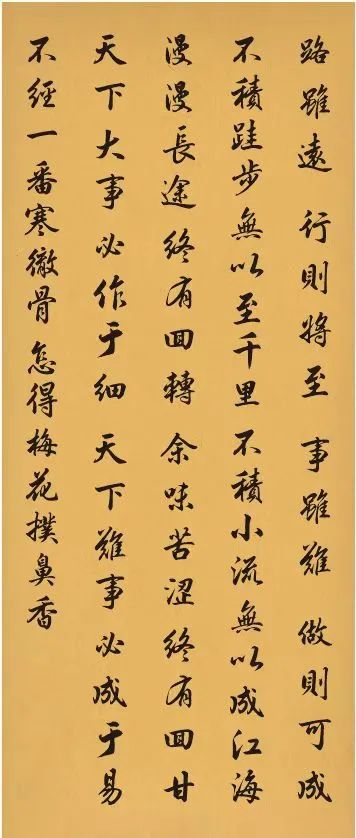 路雖遠 行則將至 事雖難 做則可成
不積跬步無以至千里 不積小流無以成江海
漫漫長途終有回轉 余味苦澀終有回甘
天下大事必作于細 天下難事必成于易
不經一番寒徹骨 怎得梅花撲鼻香